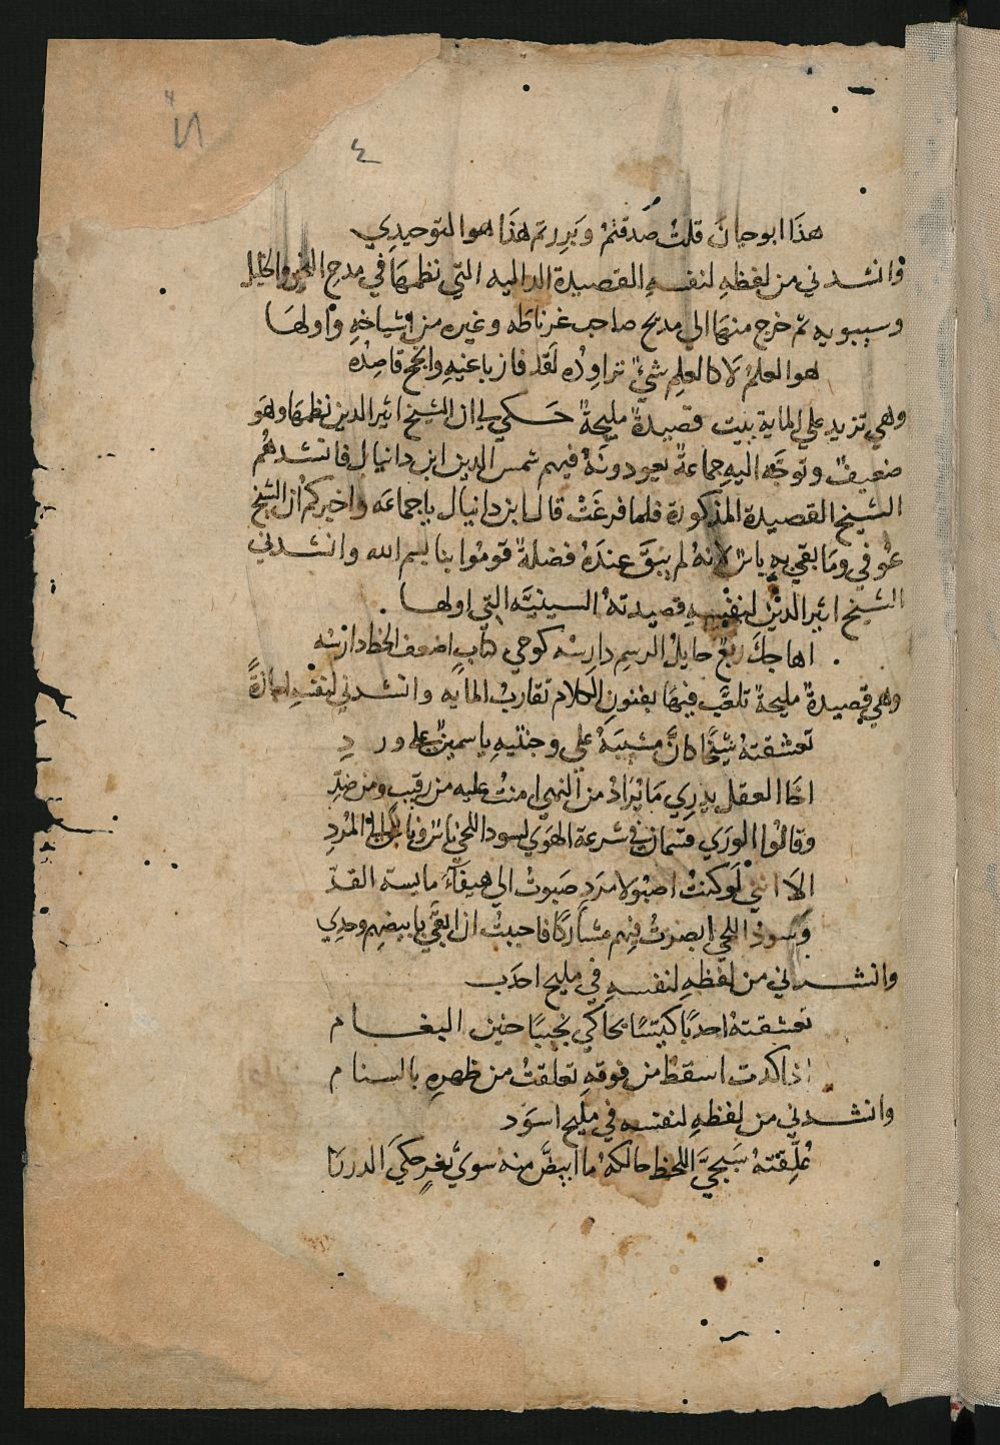 ٤
هذا ابو حيان قلت صدقتم وبررتم هذا هو التوحيدي
وانشدني من لفظه لنفسه القصيدة الداليه التي نظمها في مدح النحو والخليل
وسيبويه ثم خرج منها الي مديح صاحب غرناطه وغيره من اشياخه واولها
هو العلم لا كالعلم شيٌ تراوده لقد فاز باغيه وانجح قاصده
وهي تزيد علي الماية بيت قصيدة مليحة حكي لي ان الشيخ اثير الدين نظمها وهو
ضعيف وتوجه اليه جماعة يعودونه فيهم شمس الدين ابن دانيال فانشدهم
الشيخ القصيدة المذكورة فلما فرغت قال ابن دانيال يا جماعه واخبركم ان الشيخ
عوفي وما بقي به باس لانه لم يبق عنده فضلة قوموا بنا بسم الله وانشدني
الشيخ اثير الدين لنفسه قصيدته السينيه التي اولها
اهاجك ربع حايل الرسم دارسه كوحي كتاب اضعف الخط دارسه
وهي قصيدة مليحة تلعب فيها بفنون الكلام تقارب المايه وانشدني لنفسه
تعشقته شيخا كان مشيبه علي وجنتيه ياسمين علي ورد
اخا العقل يدري ما يراد من النهي امنت عليه من رقيب ومن ضد
وقالوا الوري قسمان في شرعة الهوي لسود اللحي ناس وناس الي المرد
الا انني لو كنت اصبو لامرد صبوت الي هيفآء مايسة القد
وسود اللحي ابصرت فيهم مشاركا فاحببت ان ابقي بابيضهم وحدي
وانشدني من لفظه لنفسه في مليح احدب
تعشقته احدبا كيسا يحاكي نجيبا حنين البغام
اذا كدت اسقط من فوقه تعلقت من ظهره بالسنام
وانشدني من لفظه لنفسه في مليح اسود
علقته سبجي اللحظ حالكه ما ابيض منه سوي ثغر حكي الدررا